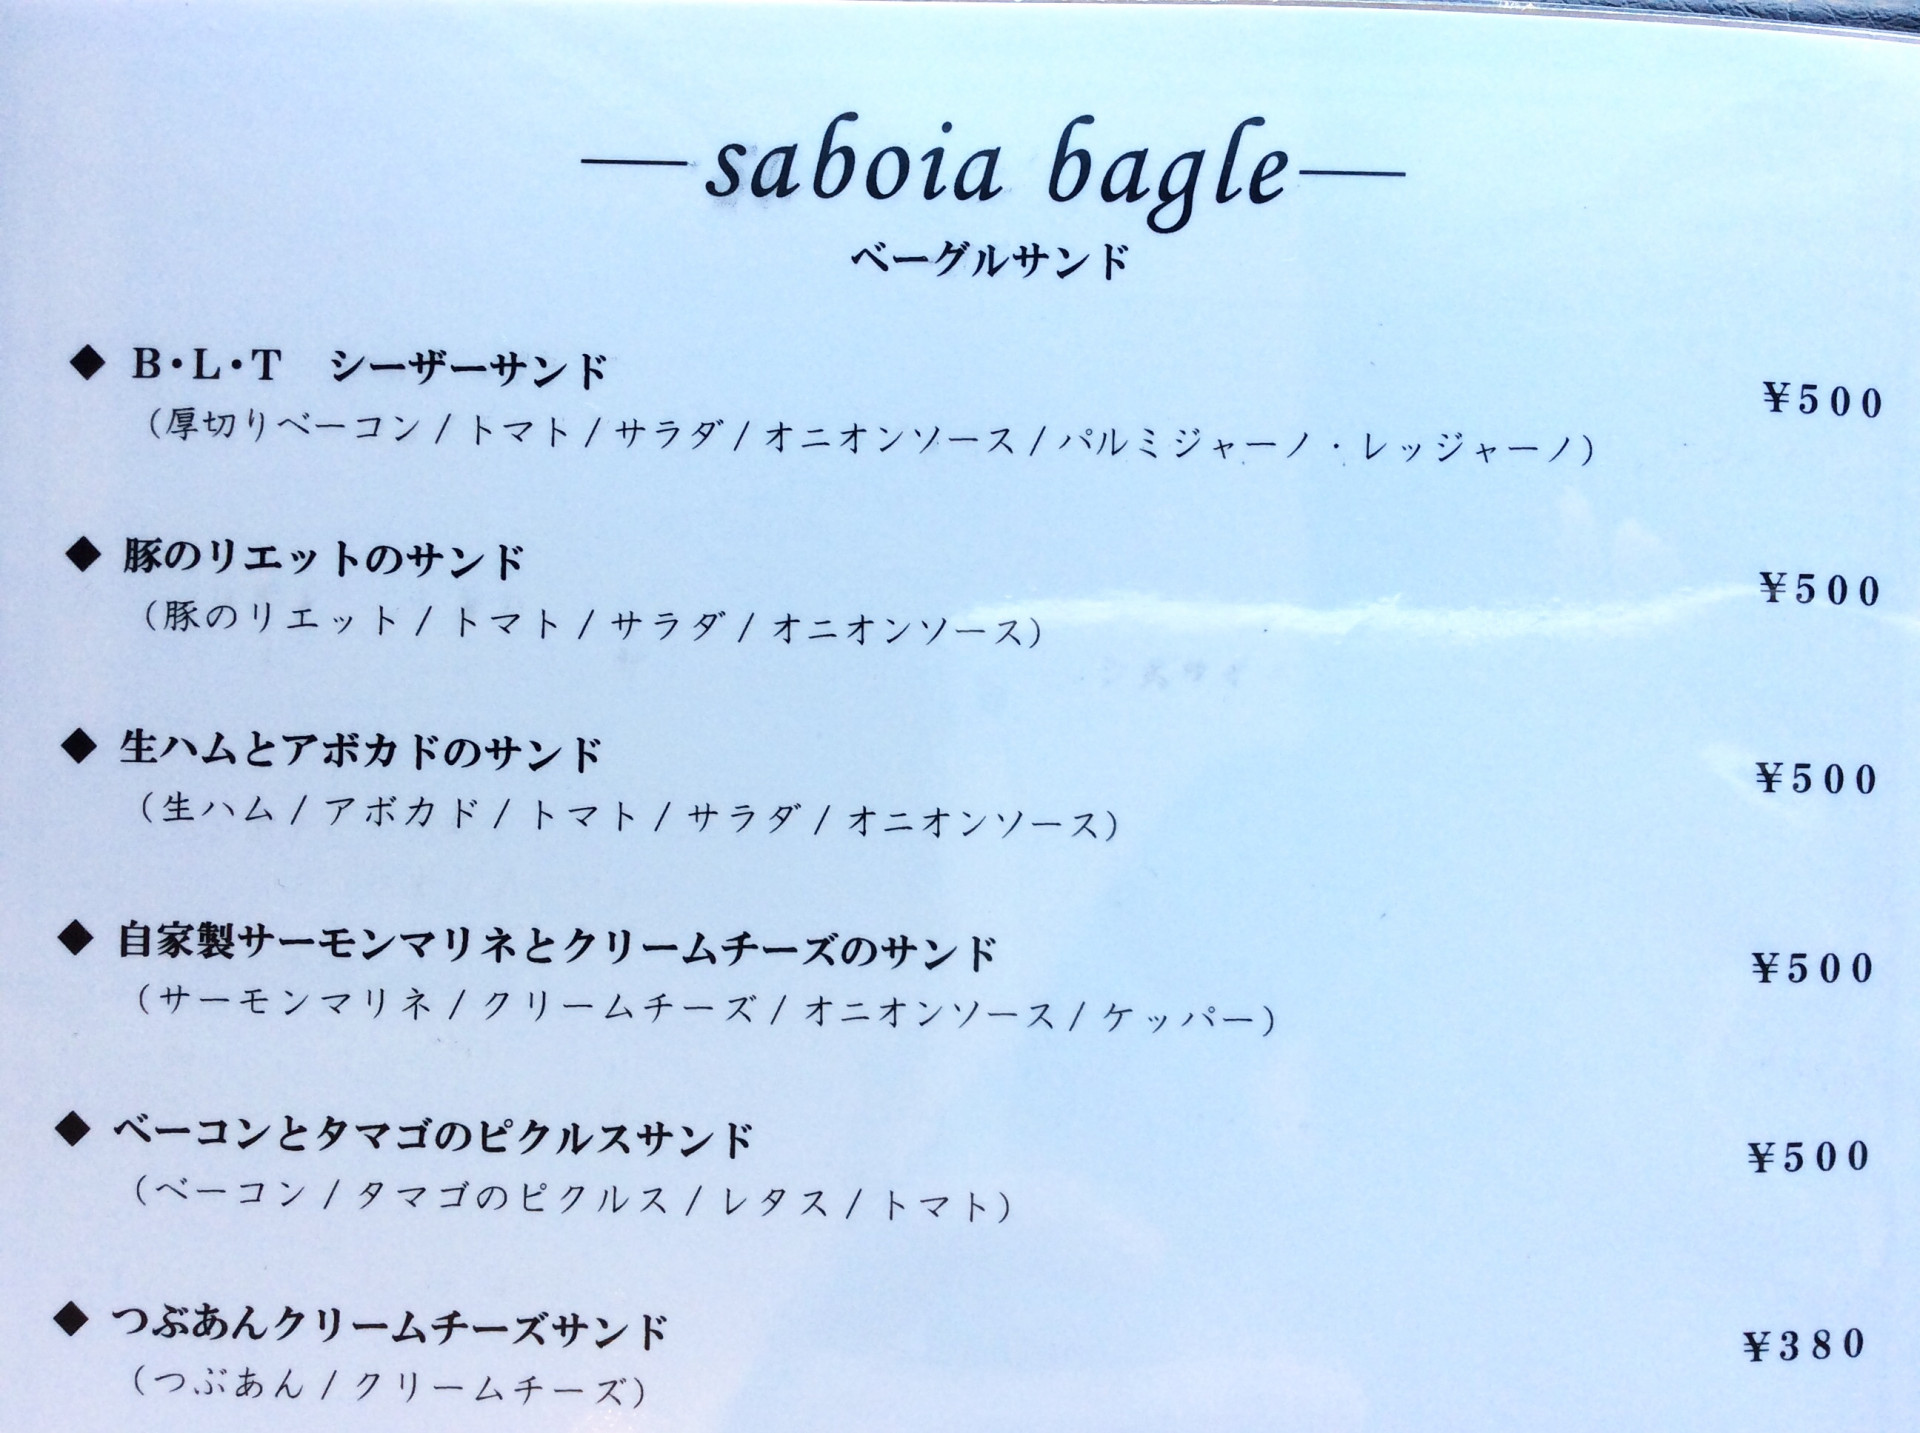 saboia bagle
ベーグルサンド
◆ B・L・T　シーザーサンド ¥500
（厚切りベーコン/トマト/サラダ/オニオンソース/パルミジャーノ・レッジャーノ）
◆ 豚のリエットのサンド ¥500
（豚のリエット/トマト/サラダ/オニオンソース）
◆ 生ハムとアボカドのサンド ¥500
（生ハム/アボカド/トマト/サラダ/オニオンソース）
◆ 自家製サーモンマリネとクリームチーズのサンド ¥500
（サーモンマリネ/クリームチーズ/オニオンソース/ケッパー）
◆ ベーコンとタマゴのピクルスサンド ¥500
（ベーコン/タマゴのピクルス/レタス/トマト）
◆ つぶあんクリームチーズサンド ¥380
（つぶあん/クリームチーズ）